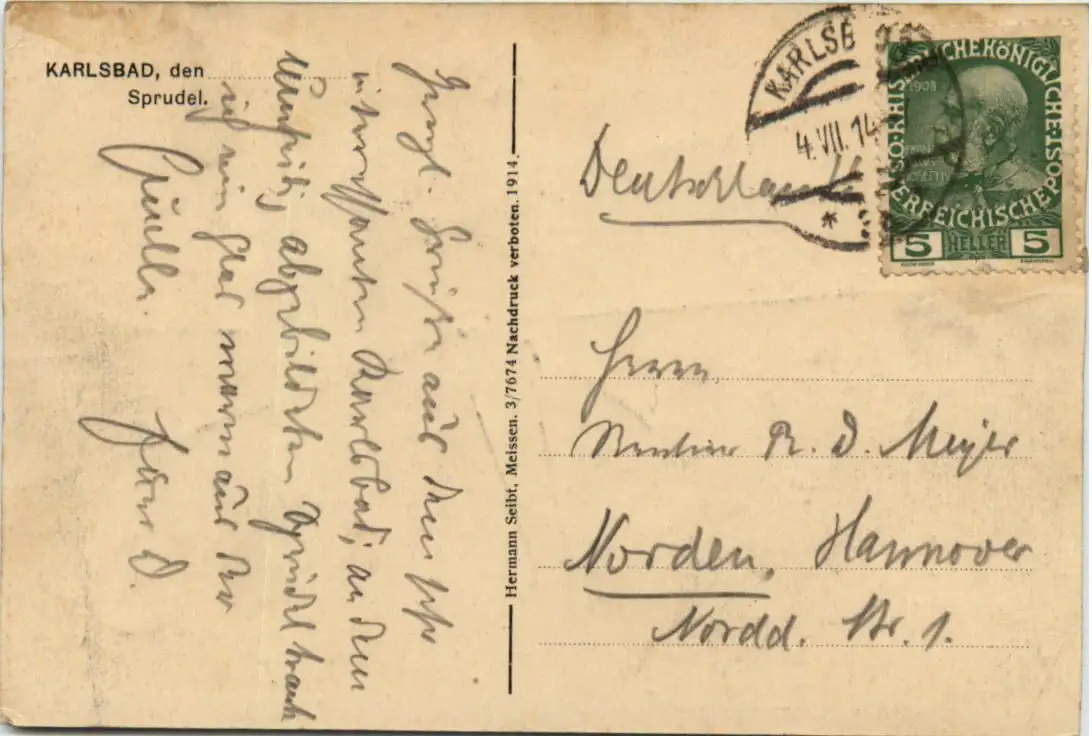 KARLSBAD, den
Sprudel.
Herzl. Grüße aus dem sehr
interessanten Karlsbad; an dem
umseitig abgebildeten Sprudel trank
ich ein Glas warm aus der
Quelle.
D.
Hermann Seibt, Meissen. 3/7674 Nachdruck verboten. 1914.
KARLSB
4.VII.14
1908
KAISERLICHE KÖNIGLICHE
ÖSTERREICHISCHE POST
5 HELLER 5
Deutschland
Herrn
Rentier R. D. Meyer
Norden, Hannover
Nordd. Str. 1.